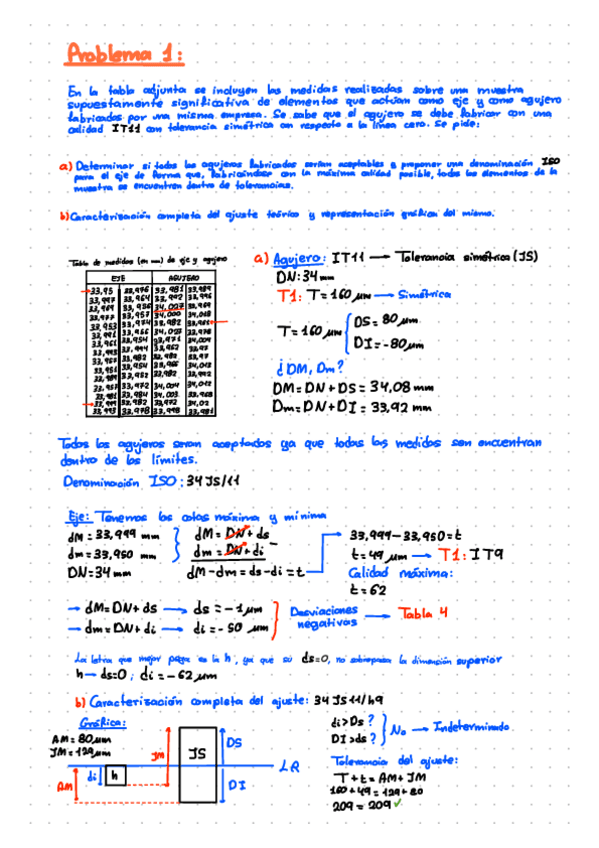 Problema 1:
En la tabla adjunta se incluyen las medidas realizadas sobre una muestra
supuestamente significativa de elementos que actúan como eje y como agujero
fabricados por una misma empresa. Se sabe que el agujero se debe fabricar con una
calidad IT11 con tolerancia simétrica con respecto a la línea cero. Se pide:
a) Determinar si todos los agujeros fabricados serían aceptables o proponer una denominación ISO
para el eje de forma que, fabricándose con la máxima calidad posible, todos los elementos de la
muestra se encuentren dentro de tolerancias.
b) Caracterización completa del ajuste teórico y representación gráfica del mismo.
Tabla de medidas (en mm) de eje y agujero
EJE AGUJERO
33,95 33,976 33,981 33,989
33,997 33,964 33,992 33,996
34,027
34,000 34,018
33,953 33,974 33,982
33,966 34,027
33,954 33,971 34,004
33,982 33,982 33,97
33,954 33,966 34,013
33,982 33,982 33,992
33,957 33,972 34,004 34,012
33,984 34,003
33,999 33,982 33,972 34,02
33,993 33,978 33,998 33,981
a) Agujero: IT11 → Tolerancia simétrica (JS)
DN: 34 mm
T1: T = 160 μm → Simétrica
T = 160 μm
DS = 80 μm
DI = -80 μm
¿DM, Dm?
DM = DN + DS = 34,08 mm
Dm = DN + DI = 33,92 mm
Todos los agujeros seran aceptados ya que todas las medidas se encuentran
dentro de los límites.
Denominación ISO: 34 JS/11
Eje: Tenemos las cotas máxima y mínima
dM = 33,999 mm
dm = 33,950 mm
DN = 34 mm
dM = DN + ds
dm = DN + di
dM - dm = ds - di = t
33,999 - 33,950 = t
t = 49 μm → T1: IT9
Calidad máxima:
t = 62
→ dM = DN + ds → ds = -1 μm
→ dm = DN + di → di = -50 μm
Desviaciones
negativas → Tabla 4
La letra que mejor pega es la h, ya que su ds=0, no sobrepasa la dimensión superior
h → ds=0; di = -62 μm
b) Caracterización completa del ajuste: 34 JS11/h9
Gráfica:
AM = 80 μm
JM = 129 μm
di
h
AM
JM
JS
DS
DI
LR
di > Ds ?
DI > ds ?
No → Indeterminado
Tolerancia del ajuste:
T + t = AM + JM
160 + 49 = 129 + 80
209 = 209 ✓